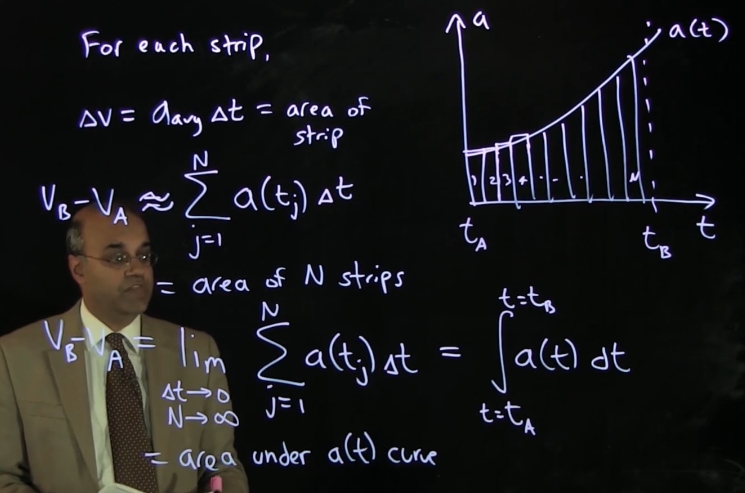 For each strip,
Δv = a_avg Δt = area of
strip
V_B - V_A ≈ Σ_{j=1}^{N} a(t_j) Δt
= area of N strips
V_B - V_A = lim_{Δt→0, N→∞} Σ_{j=1}^{N} a(t_j) Δt = ∫_{t=t_A}^{t=t_B} a(t) dt
= area under a(t) curve
a
a(t)
1 2 3 4 . . . N
t_A t_B t